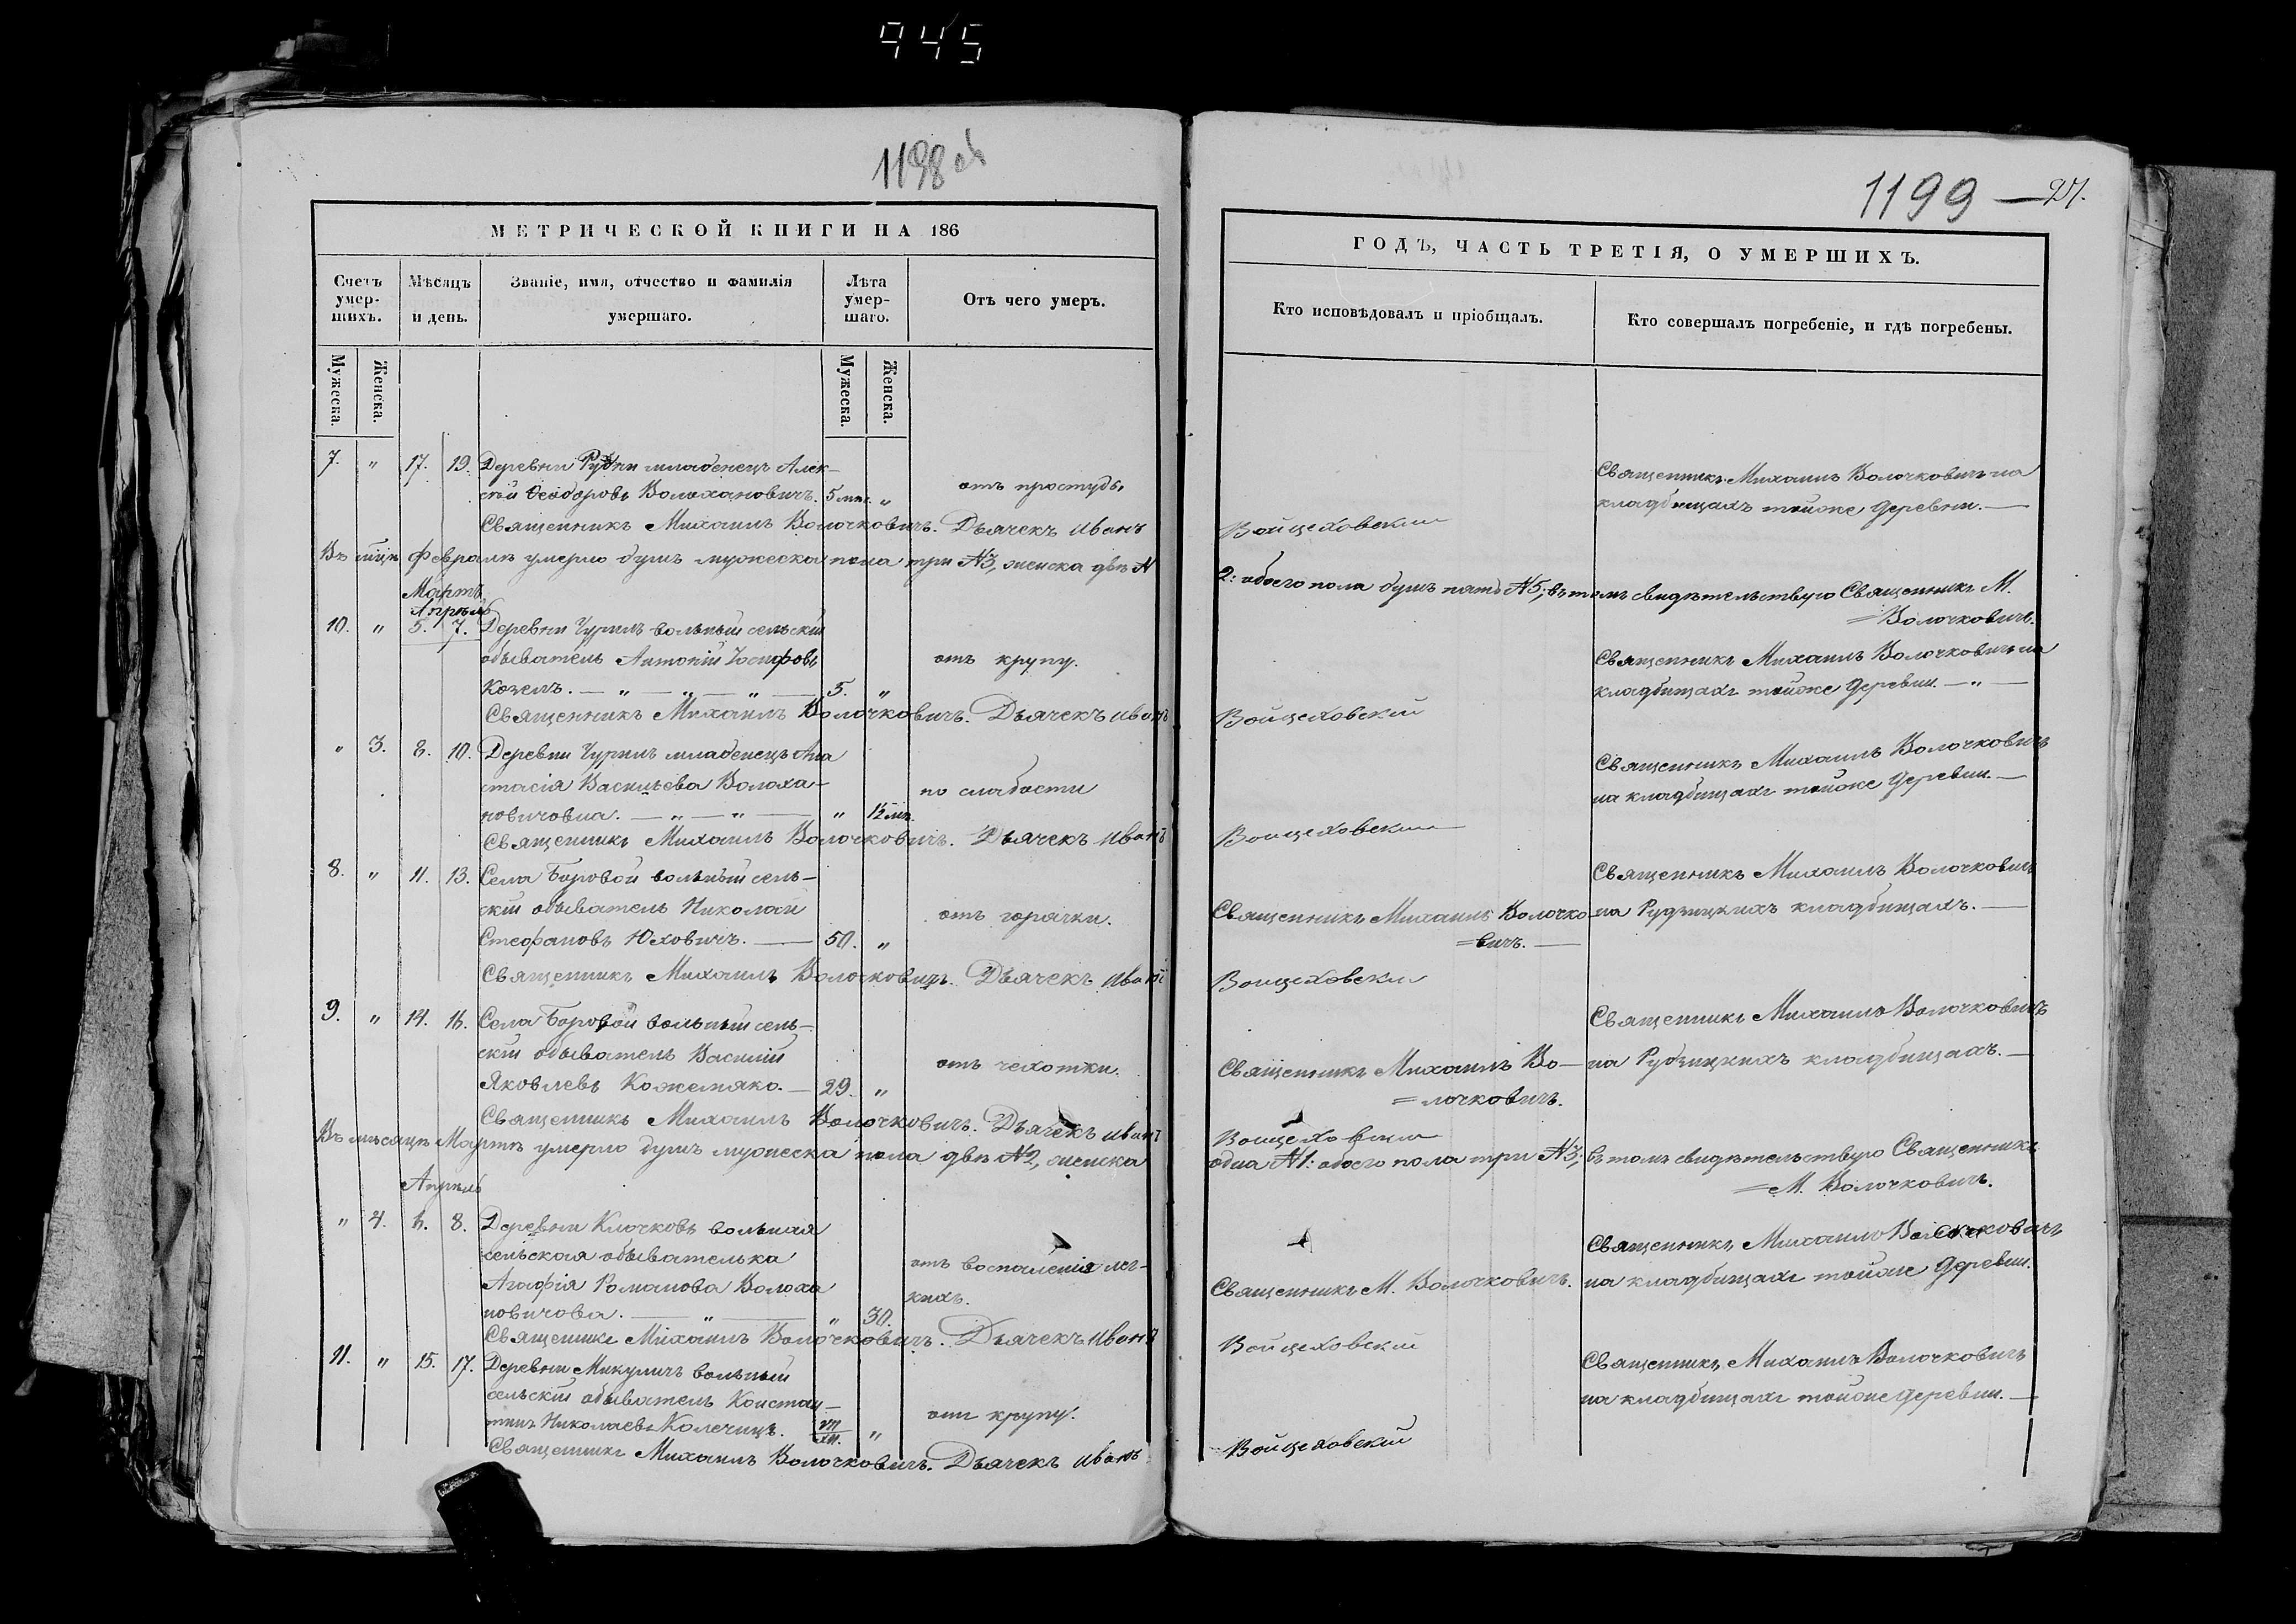 945
1198 об
1199 — 27.
МЕТРИЧЕСКОЙ КНИГИ НА 186
ГОДЪ, ЧАСТЬ ТРЕТІЯ, О УМЕРШИХЪ.
Счетъ умер-шихъ.
Мѣсяцъ и день.
Званіе, имя, отчество и фамилія умершаго.
Лѣта умер-шаго.
Отъ чего умеръ.
Кто исповѣдовалъ и пріобщалъ.
Кто совершалъ погребеніе, и гдѣ погребены.
Мужеска.
Женска.
Мужеска.
Женска.
7. " 17. 19. Деревни Рудни младенецъ Алек-
сѣй Ѳеодоровъ Волоховичъ. 5 мѣс. " отъ простуды
Священникъ Михаилъ Волочковичъ на
кладбищахъ тойже деревни. —
Священникъ Михаилъ Волочковичъ. Дьячекъ Иванъ Войцеховскій
Въ мцѣ Февралѣ умерло душъ мужеска пола три №3, женска двѣ №
2: обоего пола душъ пять №5; въ томъ свидѣтельствую Священникъ М.
=Волочковичъ.
Мартъ
Апрѣль
10. " 5. 7. Деревни Чурилъ вольный сельскій
обыватель Антоній Іосифовъ отъ крупу.
Козелъ. — " — " — " — 5. "
Священникъ Михаилъ Волочковичъ на
кладбищахъ тойже деревни. — " —
Священникъ Михаилъ Волочковичъ. Дьячекъ Иванъ Войцеховскій
" 3. 8. 10. Деревни Чурилъ младенецъ Ана
стасія Васильева Волоха- по слабости
новичовна. — " — " — " 1½ мѣс.
Священникъ Михаилъ Волочковичъ
на кладбищахъ тойже деревни. —
Священникъ Михаилъ Волочковичъ. Дьячекъ Иванъ Войцеховскій
8. " 11. 13. Села Боровой вольный сель-
скій обыватель Николай отъ горячки.
Стефановъ Юховичъ. — 50. "
Священникъ Михаилъ Волочко
=вичъ. —
Священникъ Михаилъ Волочковичъ
на Рудзицкихъ кладбищахъ. —
Священникъ Михаилъ Волочковичъ. Дьячекъ Иванъ Войцеховскій
9. " 14. 16. Села Боровой вольный сель-
скій обыватель Василій отъ чехотки.
Яковлевъ Кожемяко. — 29. "
Священникъ Михаилъ Во-
=лочковичъ.
Священникъ Михаилъ Волочковичъ
на Рудзицкихъ кладбищахъ. —
Священникъ Михаилъ Волочковичъ. Дьячекъ Иванъ Войцеховскій
Въ мѣсяцѣ Мартѣ умерло душъ мужеска пола двѣ №2, женска
одна №1: обоего пола три №3; въ томъ свидѣтельствую Священникъ
=М. Волочковичъ.
Апрѣль
" 4. 6. 8. Деревни Клочковъ вольная
сельская обывателька отъ воспаленія лег-
Агафія Романова Волоха кихъ.
новичова. — " — " 30.
Священникъ М. Волочковичъ.
Священникъ Михаилъ Волочковичъ
на кладбищахъ тойже деревни.
Священникъ Михаилъ Волочковичъ. Дьячекъ Иванъ Войцеховскій
11. " 15. 17. Деревни Микуличъ вольный
сельскій обыватель Констан-
тинъ Николаевъ Колечицъ. " отъ крупу.
Священникъ Михаилъ Волочковичъ
на кладбищахъ тойже деревни. —
Священникъ Михаилъ Волочковичъ. Дьячекъ Иванъ Войцеховскій